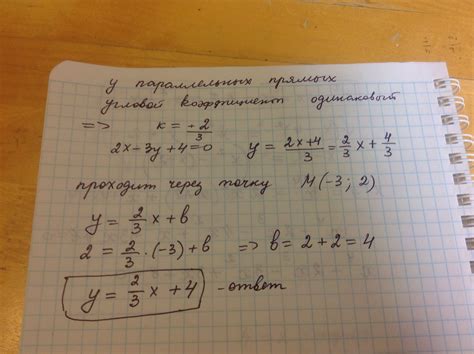 у параллельных прямых
угловой коэффициент одинаковый
=> к = -2/3
2x-3y+4=0 y = (2x+4)/3 = 2/3 x + 4/3
проходит через точку M(-3; 2)
y = 2/3 x + b
2 = 2/3 · (-3) + b => b = 2 + 2 = 4
y = 2/3 x + 4 - ответ